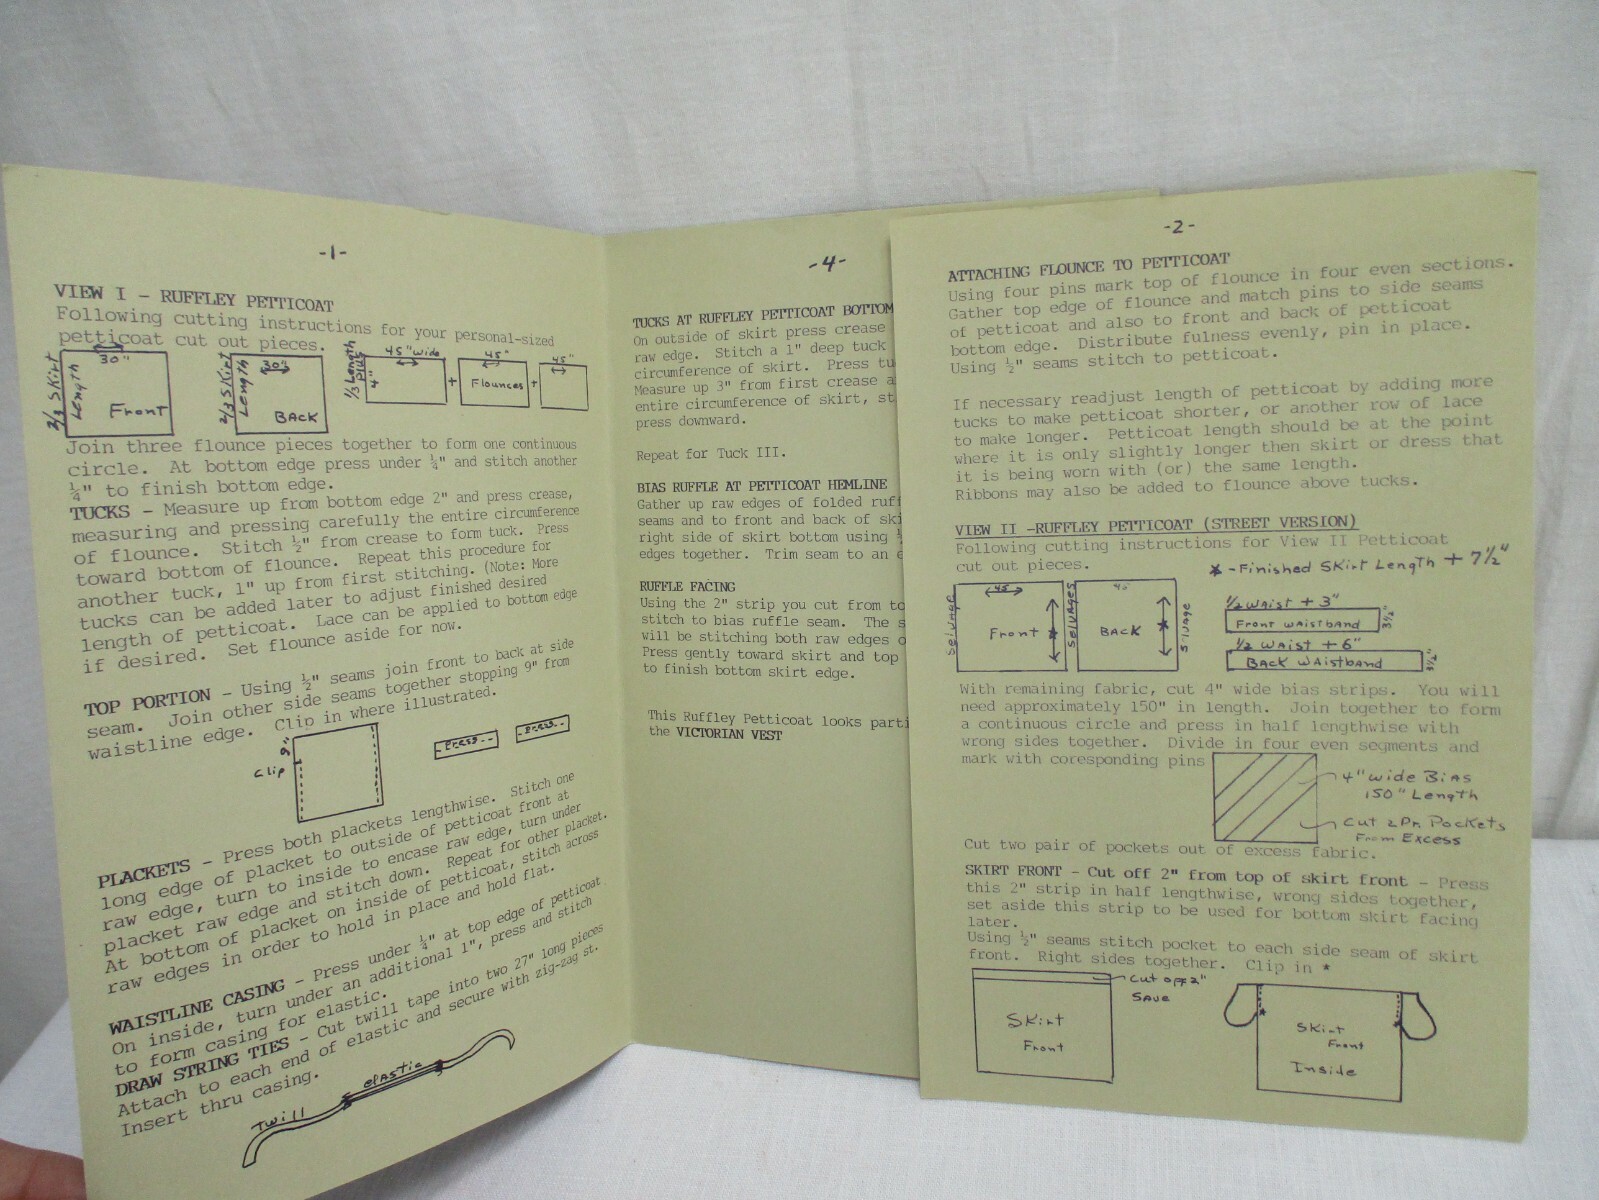 -1-
VIEW I - RUFFLEY PETTICOAT
Following cutting instructions for your personal-sized
petticoat cut out pieces.
2/3 Skirt Length
30"
Front
2/3 Skirt Length
30"
BACK
1/3 Length plus 4"
45" wide
+
45"
Flounces
+
45"
Join three flounce pieces together to form one continuous
circle. At bottom edge press under ¼" and stitch another
¼" to finish bottom edge.
TUCKS - Measure up from bottom edge 2" and press crease,
measuring and pressing carefully the entire circumference
of flounce. Stitch ½" from crease to form tuck. Press
toward bottom of flounce. Repeat this procedure for
another tuck, 1" up from first stitching. (Note: More
tucks can be added later to adjust finished desired
length of petticoat. Lace can be applied to bottom edge
if desired. Set flounce aside for now.
TOP PORTION - Using ½" seams join front to back at side
seam. Join other side seams together stopping 9" from
waistline edge. Clip in where illustrated.
9"
Clip
Press
Press
PLACKETS - Press both plackets lengthwise. Stitch one
long edge of placket to outside of petticoat front at
raw edge, turn to inside to encase raw edge, turn under
placket raw edge and stitch down. Repeat for other placket.
At bottom of placket on inside of petticoat, stitch across
raw edges in order to hold in place and hold flat.
WAISTLINE CASING - Press under ¼" at top edge of petticoat
On inside, turn under an additional 1", press and stitch
to form casing for elastic.
DRAW STRING TIES - Cut twill tape into two 27" long pieces
Attach to each end of elastic and secure with zig-zag st.
Insert thru casing.
Twill
elastic
-4-
TUCKS AT RUFFLEY PETTICOAT BOTTOM
On outside of skirt press crease
raw edge. Stitch a 1" deep tuck
circumference of skirt. Press tu
Measure up 3" from first crease a
entire circumference of skirt, st
press downward.
Repeat for Tuck III.
BIAS RUFFLE AT PETTICOAT HEMLINE
Gather up raw edges of folded ruff
seams and to front and back of ski
right side of skirt bottom using
edges together. Trim seam to an
RUFFLE FACING
Using the 2" strip you cut from to
stitch to bias ruffle seam. The s
will be stitching both raw edges o
Press gently toward skirt and top
to finish bottom skirt edge.
This Ruffley Petticoat looks parti
the VICTORIAN VEST
-2-
ATTACHING FLOUNCE TO PETTICOAT
Using four pins mark top of flounce in four even sections.
Gather top edge of flounce and match pins to side seams
of petticoat and also to front and back of petticoat
bottom edge. Distribute fulness evenly, pin in place.
Using ½" seams stitch to petticoat.
If necessary readjust length of petticoat by adding more
tucks to make petticoat shorter, or another row of lace
to make longer. Petticoat length should be at the point
where it is only slightly longer then skirt or dress that
it is being worn with (or) the same length.
Ribbons may also be added to flounce above tucks.
VIEW II -RUFFLEY PETTICOAT (STREET VERSION)
Following cutting instructions for View II Petticoat
cut out pieces.
* - Finished Skirt Length + 7½"
Selvage
45
Front
Selvages
45
BACK
Selvage
½ Waist + 3"
Front Waistband
3½"
½ Waist + 6"
BACK WAISTBAND
3½"
With remaining fabric, cut 4" wide bias strips. You will
need approximately 150" in length. Join together to form
a continuous circle and press in half lengthwise with
wrong sides together. Divide in four even segments and
mark with coresponding pins
4" wide Bias
150" Length
Cut 2 Pr. Pockets
From Excess
Cut two pair of pockets out of excess fabric.
SKIRT FRONT - Cut off 2" from top of skirt front - Press
this 2" strip in half lengthwise, wrong sides together,
set aside this strip to be used for bottom skirt facing
later.
Using ½" seams stitch pocket to each side seam of skirt
front. Right sides together. Clip in *
Cut off 2"
Save
Skirt
Front
Skirt
Front
Inside